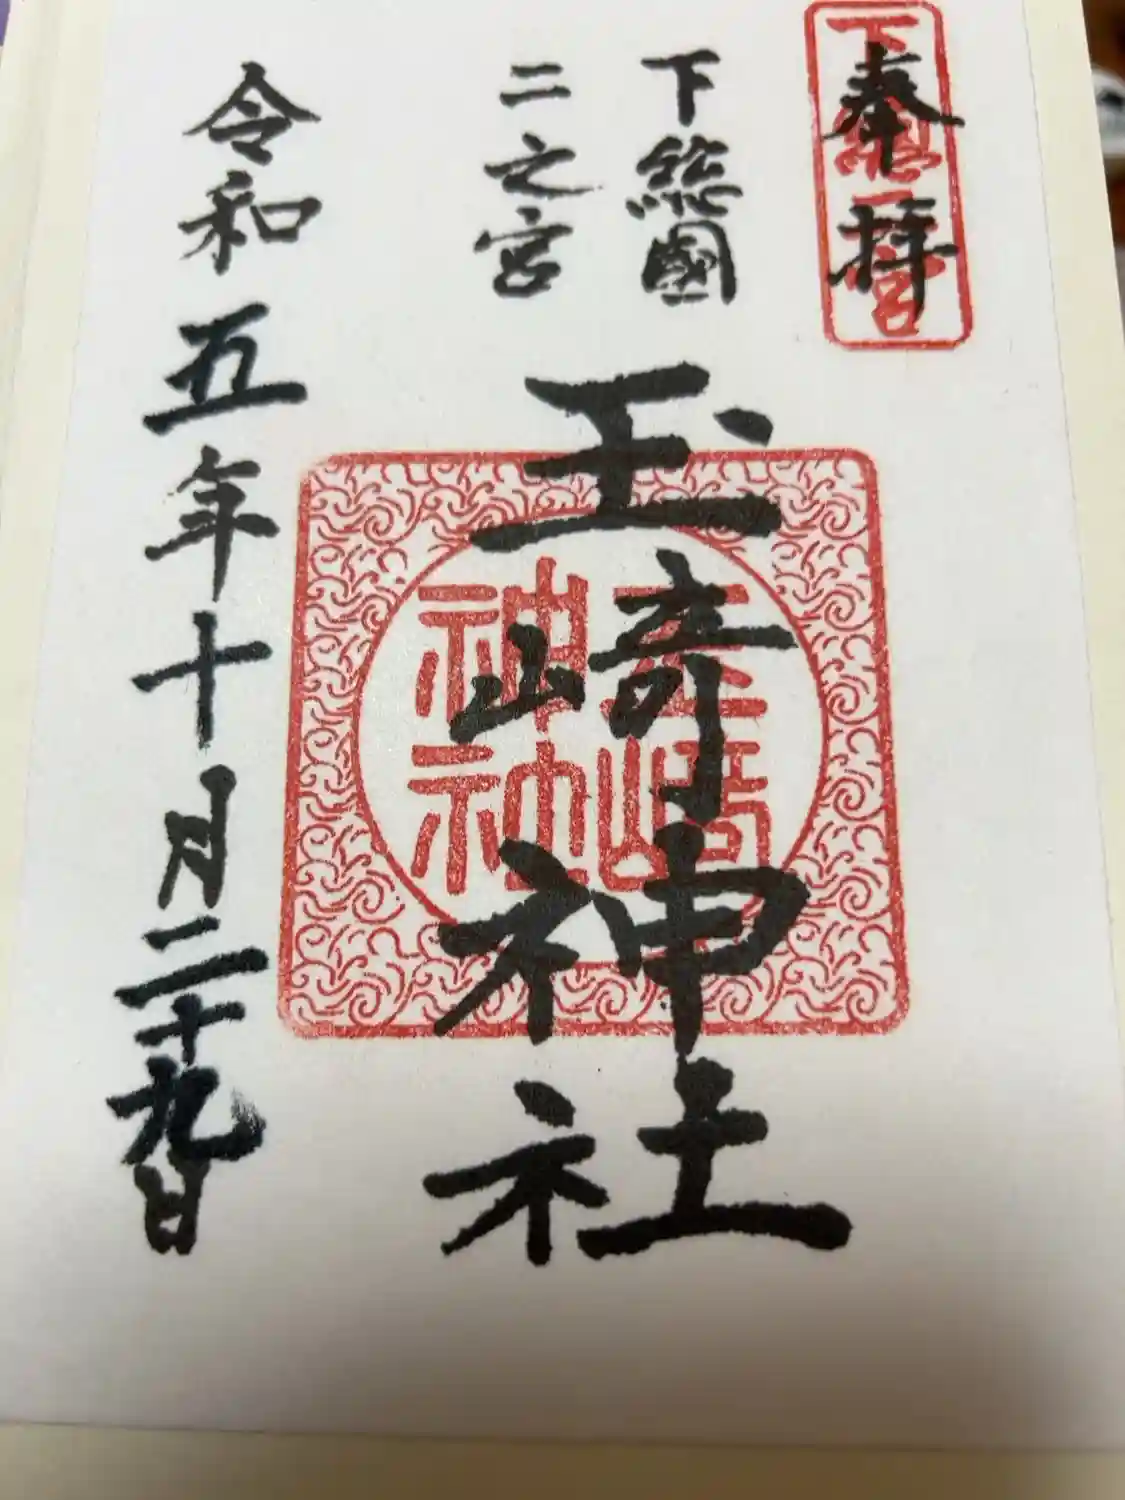 奉拝
下総二宮
下総國
二之宮
玉﨑神社
玉﨑神社
令和五年十月二十九日